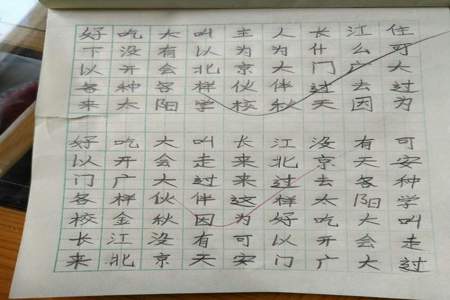 好吃大叫主人长江住
下没有以为为什么可
以开会北京大门广大
各种各样伙伴过去过
来太阳学校秋天因为
好吃大叫长江没有可
以开会走来北京天安
门广大过来过去各种
各样伙伴这样太阳学
校金秋因为好吃大叫
长江没有可以开会走
来北京天安门广大过